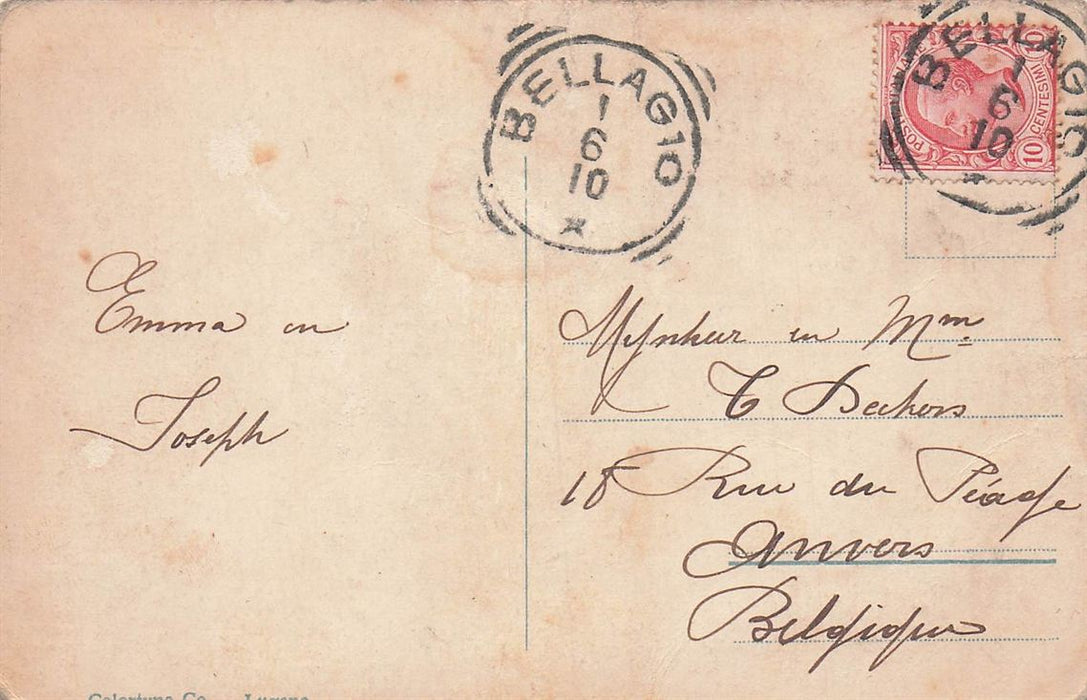 BELLAGIO
1
6
10
BELLAGIO
1
6
10
10
10 CENTESIMI
Emma en
Joseph
Mijnheer en Mme
Deckers
18 Rue du Péage
Anvers
Belgique
Colortype Co. Lugano